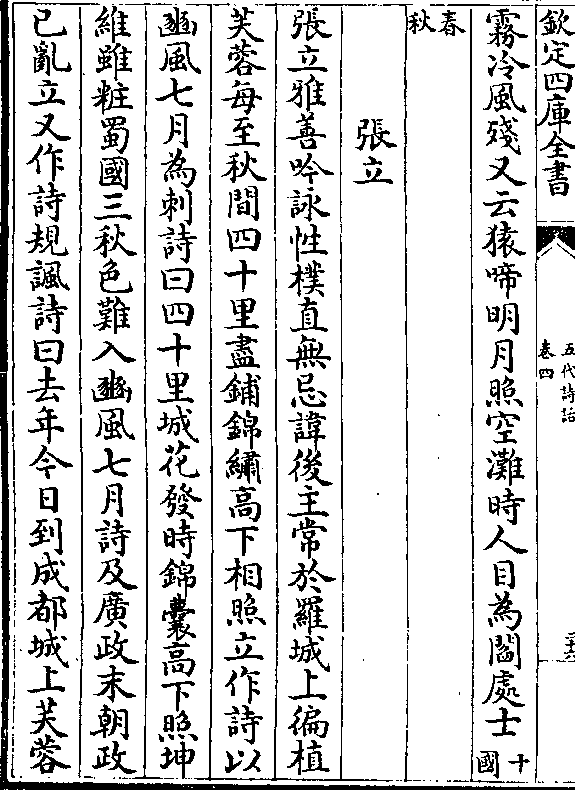 欽定四庫全書
五代詩話
卷四
二十六
霧冷風殘又云猿啼明月照空灘時人目為閻處士十國
春秋
張立
張立雅善吟詠性樸直無忌諱後主常於羅城上徧植
芙蓉每至秋間四十里盡鋪錦繡高下相照立作詩以
豳風七月為刺詩曰四十里城花發時錦囊高下照坤
維雖粧蜀國三秋色難入豳風七月詩及廣政末朝政
已亂立又作詩規諷詩曰去年今日到成都城上芙蓉